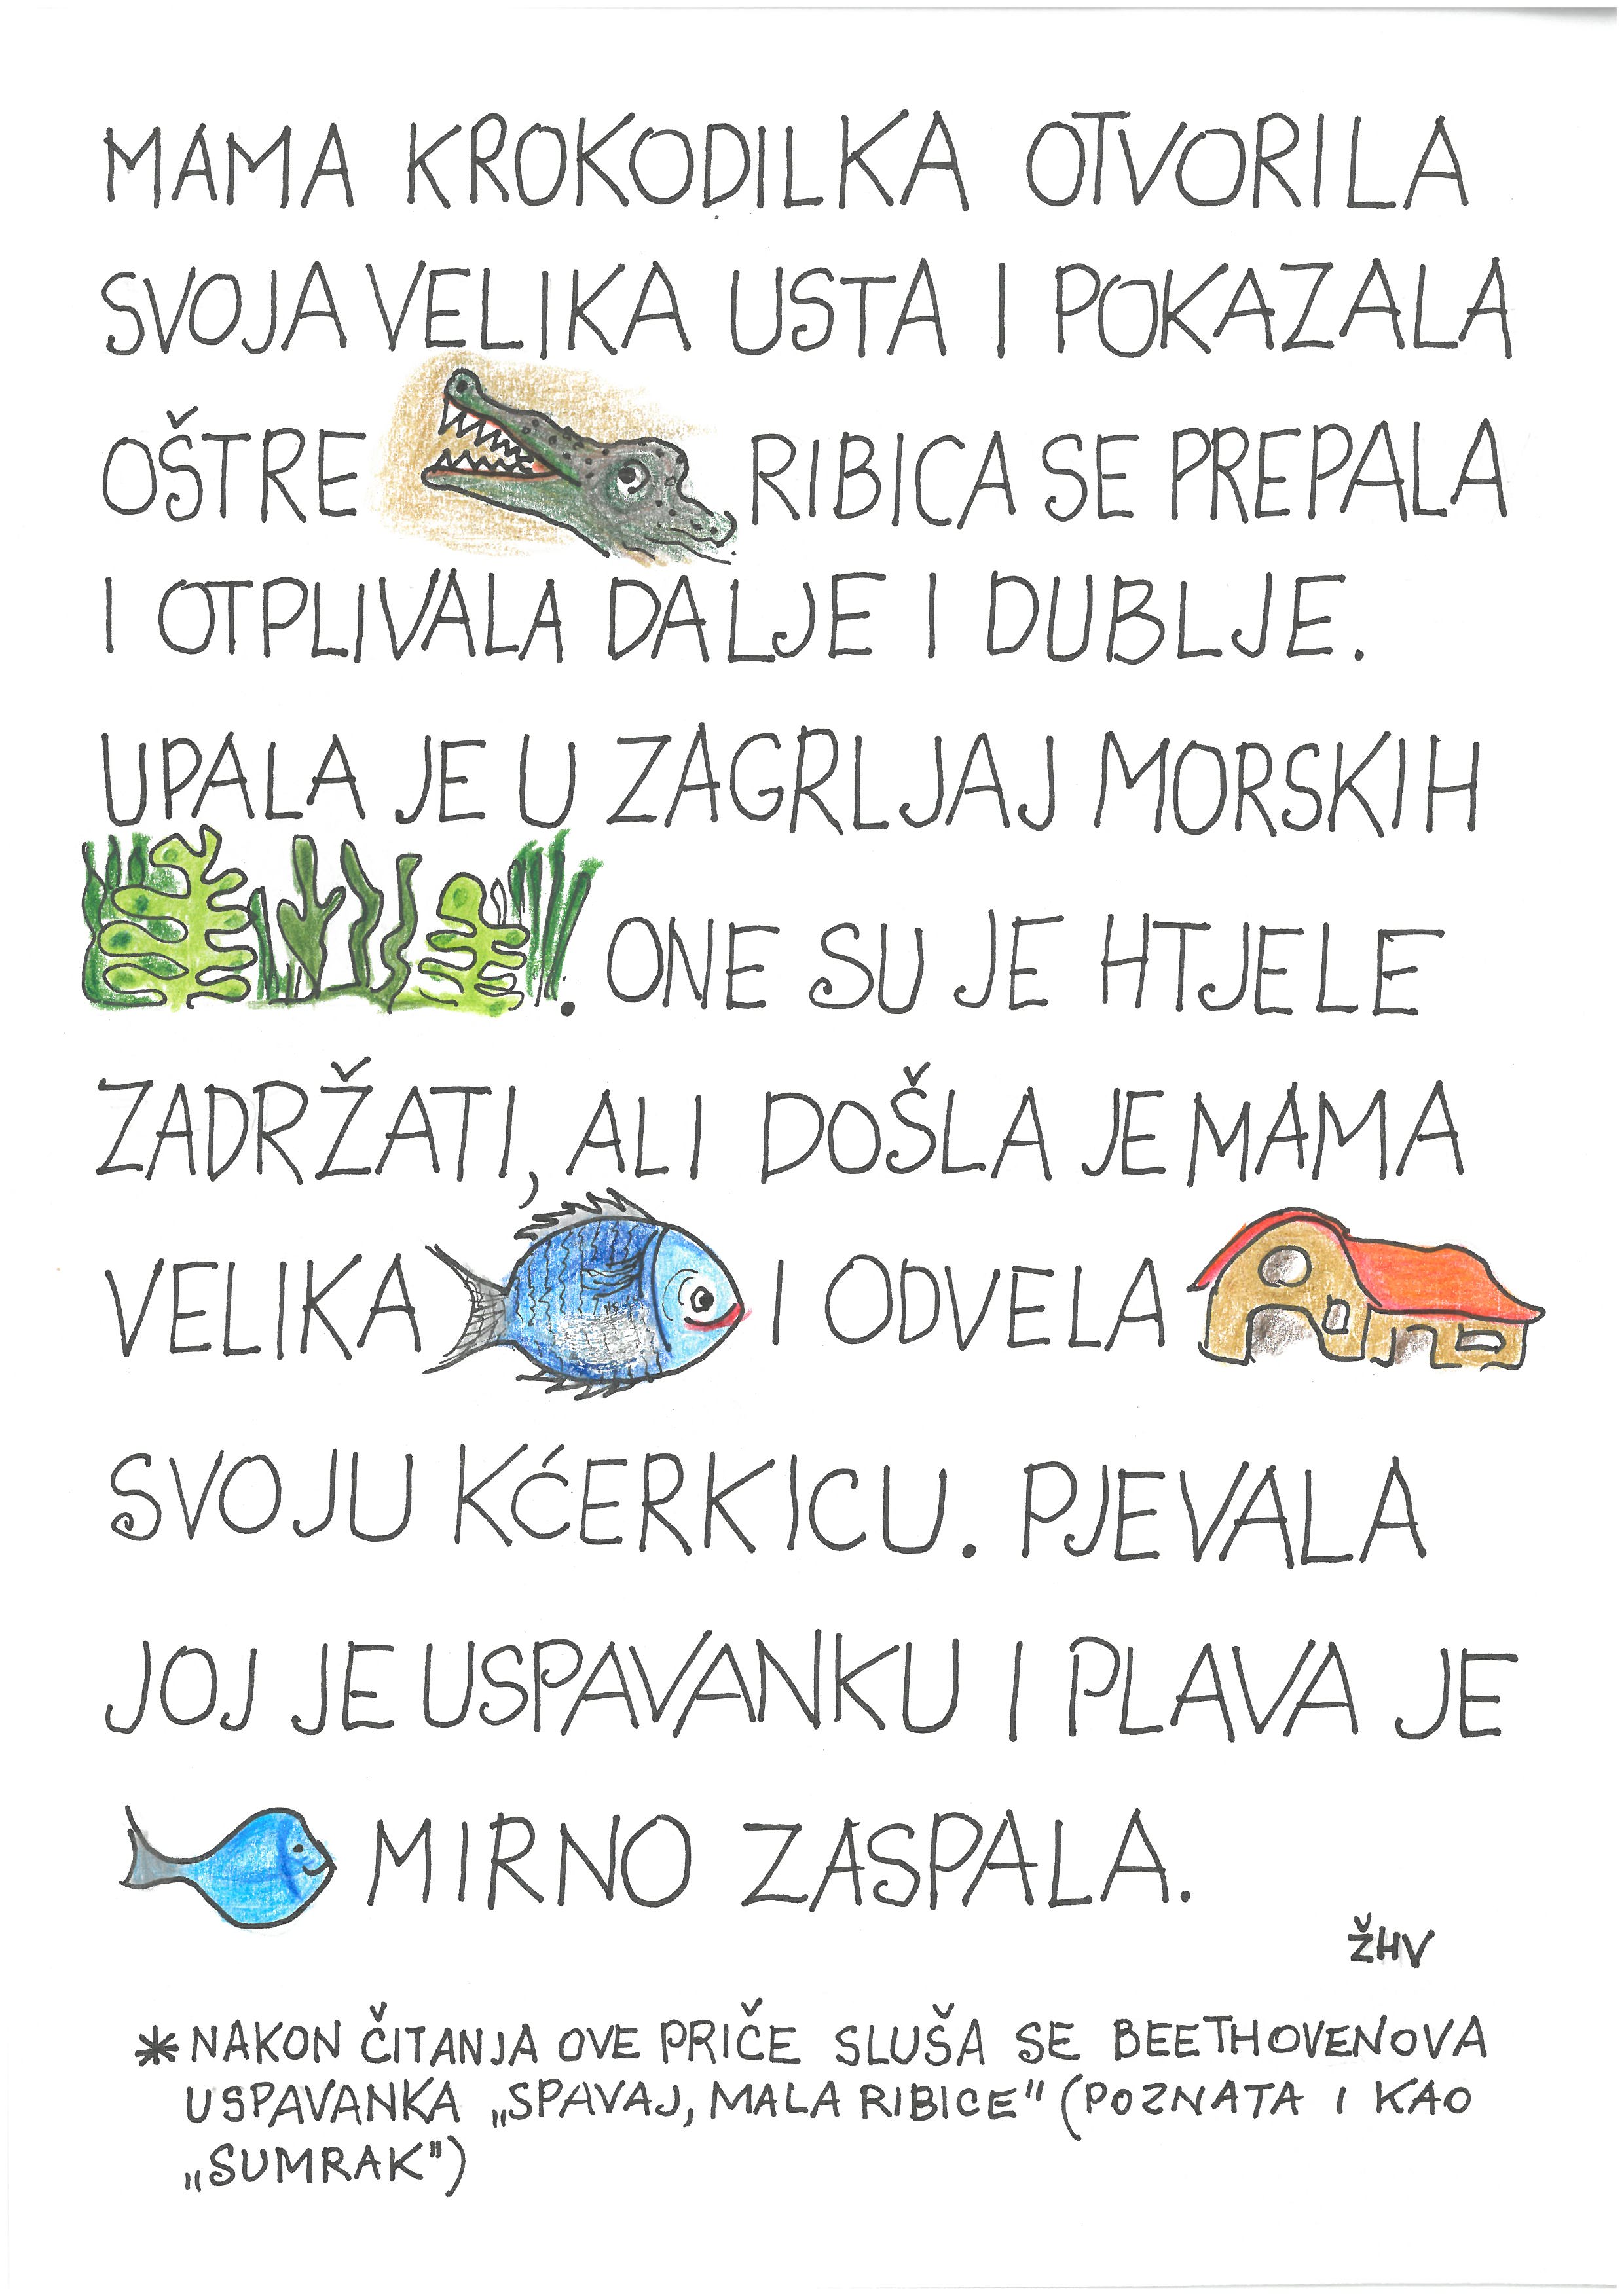 MAMA KROKODILKA OTVORILA
SVOJA VELIKA USTA I POKAZALA
OŠTRE RIBICA SE PREPALA
I OTPLIVALA DALJE I DUBLJE.
UPALA JE U ZAGRLJAJ MORSKIH
. ONE SU JE HTJELE
ZADRŽATI, ALI DOŠLA JE MAMA
VELIKA I ODVELA
SVOJU KĆERKICU. PJEVALA
JOJ JE USPAVANKU I PLAVA JE
MIRNO ZASPALA.
ŽHV
*NAKON ČITANJA OVE PRIČE SLUŠA SE BEETHOVENOVA
USPAVANKA „SPAVAJ, MALA RIBICE" (POZNATA I KAO
„SUMRAK")